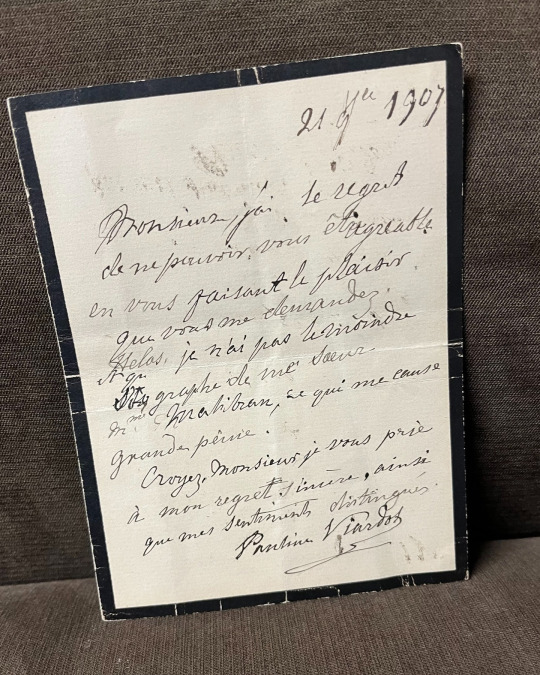 21 9bre 1907
Monsieur, j'ai le regret
de ne pouvoir vous être agréable
en vous faisant le plaisir
que vous me demandez.
Hélas, je n'ai pas le moindre
autographe de ma sœur
Mme Malibran, ce qui me cause
grande peine.
Croyez, Monsieur, je vous prie
à mon regret sincère, ainsi
que mes sentiments distingués.
Pauline Viardot